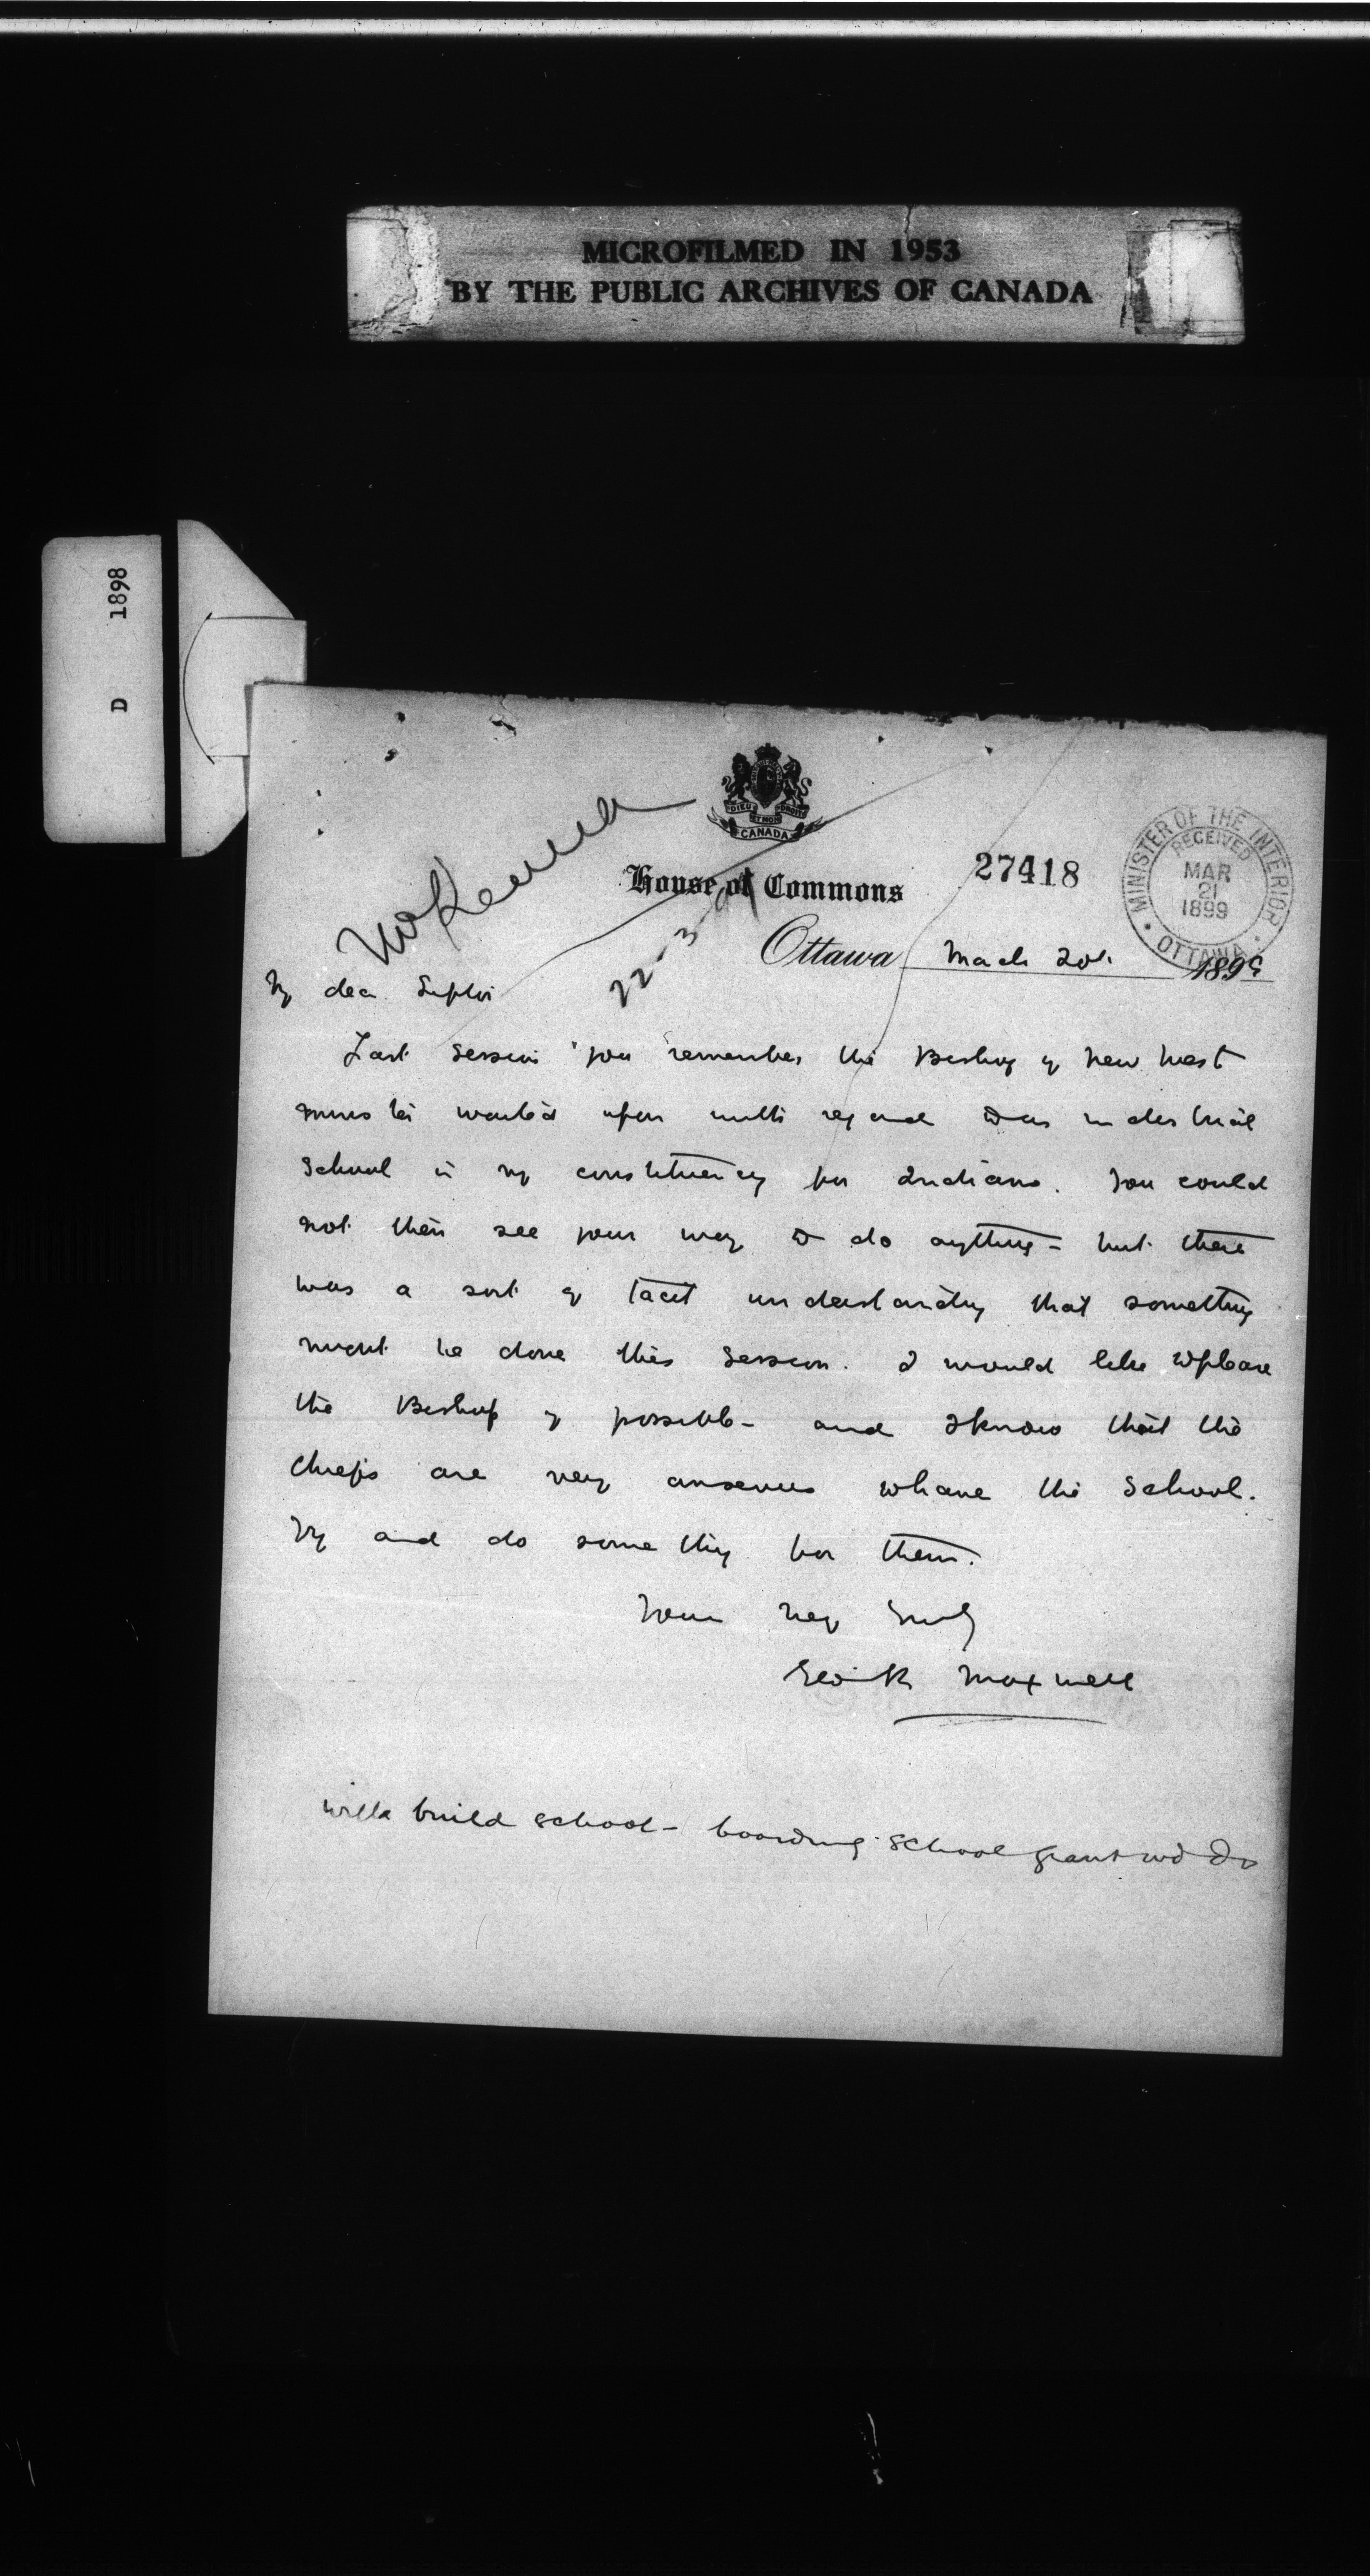 MICROFILMED IN 1953
BY THE PUBLIC ARCHIVES OF CANADA
D 1898
DIEU ET MON DROIT
CANADA
McKenna
House of Commons
27418
MINISTER OF THE INTERIOR
RECEIVED
MAR
21
1899
OTTAWA
22-3-
Ottawa March 20th 1899
My dear Sifton
Last session you remember the Bishop of New West
minster waited upon with regard to an industrial
School in my constituency for Indians. You could
not then see your way to do anything - but there
was a sort of tacit understanding that something
might be done this Session. I would like to please
the Bishop if possible - and I know that the
Chiefs are very anxious to have the School.
Try and do something for them.
Yours very truly
Geo R Maxwell
build school - boarding school grant wd do